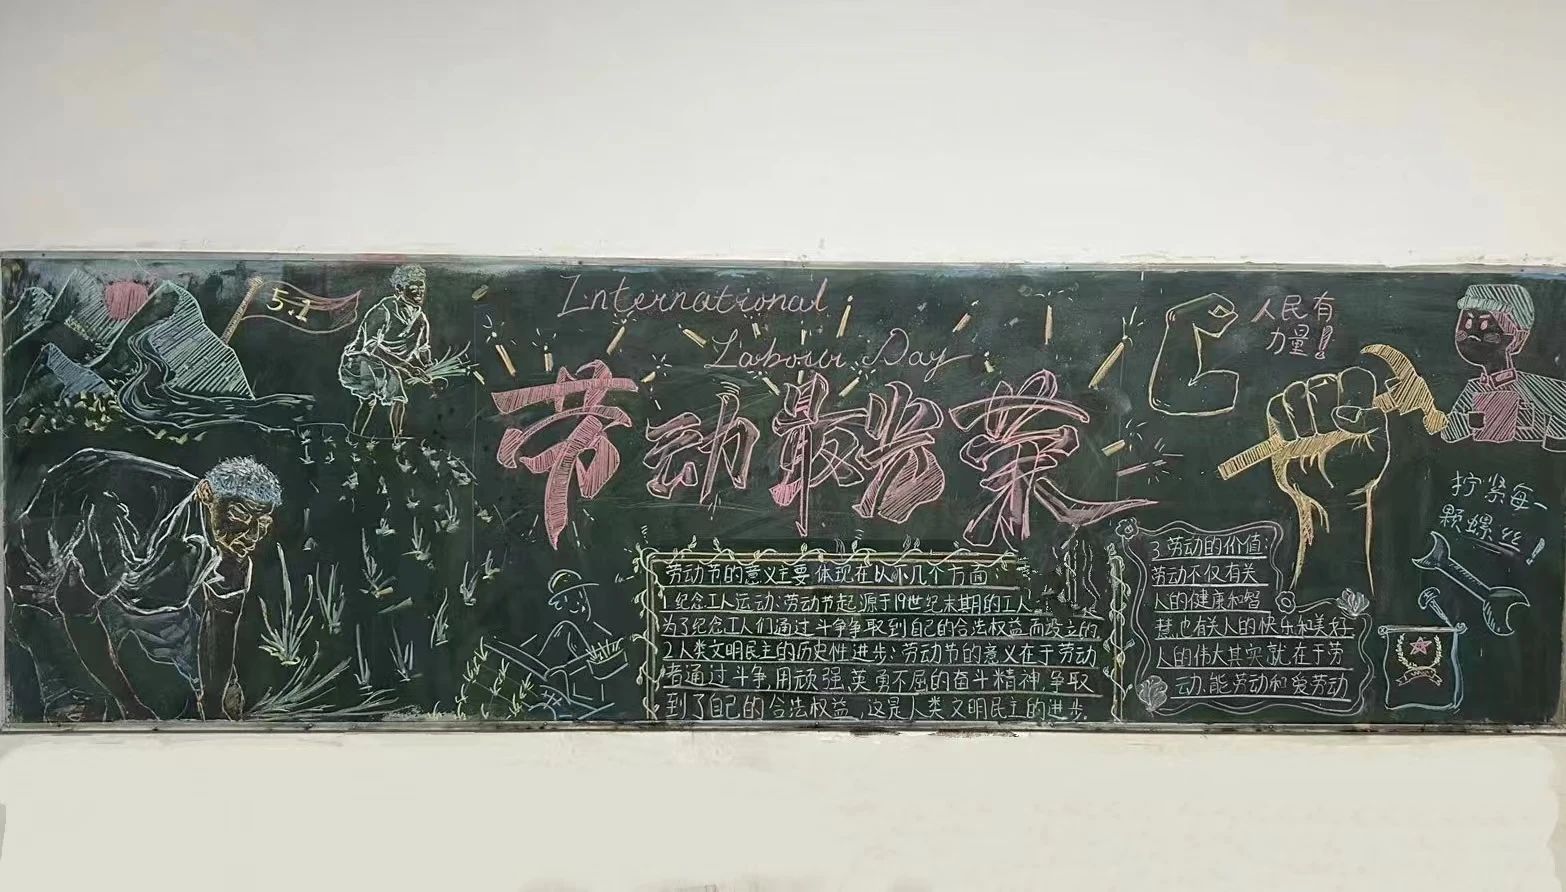 5.1
International
Labour Day
劳动最光荣
人民有
力量!
拧紧每一
颗螺丝!
劳动节的意义主要体现在以下几个方面:
1.纪念工人运动:劳动节起源于19世纪末期的工人
为了纪念工人们通过斗争争取到自己的合法权益而设立的
2.人类文明民主的历史性进步:劳动节的意义在于劳动
者通过斗争,用顽强,英勇不屈的奋斗精神,争取
到了自己的合法权益,这是人类文明民主的进步.
3.劳动的价值:
劳动不仅有关
人的健康和智
慧,也有关人的快乐和美好.
人的伟大其实就在于劳
动.能劳动和爱劳动